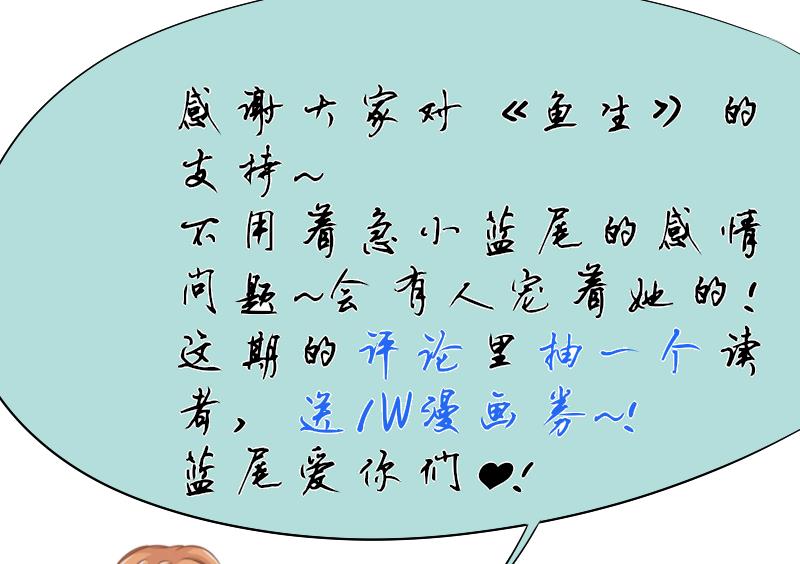 感谢大家对《鱼生》的
支持~
不用着急小蓝尾的感情
问题~会有人宠着她的!
这期的评论里抽一个读
者，送1W漫画券~!
蓝尾爱你们♥!